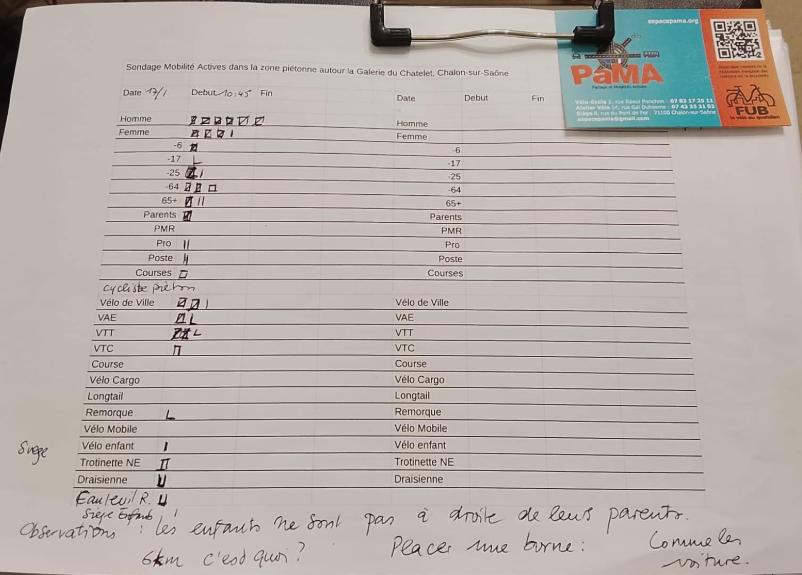 espacepama.org
PaMA
Partage et Mobilités Actives
Vélo-École 2, rue Raoul Ponchon : 07 83 17 25 11
espacepama@gmail.com
71100 Chalon-sur-Saône
FUB
le vélo au quotidien
Sondage Mobilité Actives dans la zone piétonne autour la Galerie du Chatelet, Chalon-sur-Saône
Date 17/1 Debut 10:45 Fin Date Debut Fin
Homme Homme
Femme Femme
-6 -6
-17 -17
-25 -25
-64 -64
65+ 65+
Parents Parents
PMR PMR
Pro Pro
Poste Poste
Courses Courses
cycliste piéton
Vélo de Ville Vélo de Ville
VAE VAE
VTT VTT
VTC VTC
Course Course
Vélo Cargo Vélo Cargo
Longtail Longtail
Remorque Remorque
Vélo Mobile Vélo Mobile
Siège Vélo enfant Vélo enfant
Trotinette NE Trotinette NE
Draisienne Draisienne
Fauteuil R.
Siège Enfants
Observations : les enfants ne sont pas à droite de leurs parents.
6km c'est quoi ? Placer une borne : Comme les
voiture.